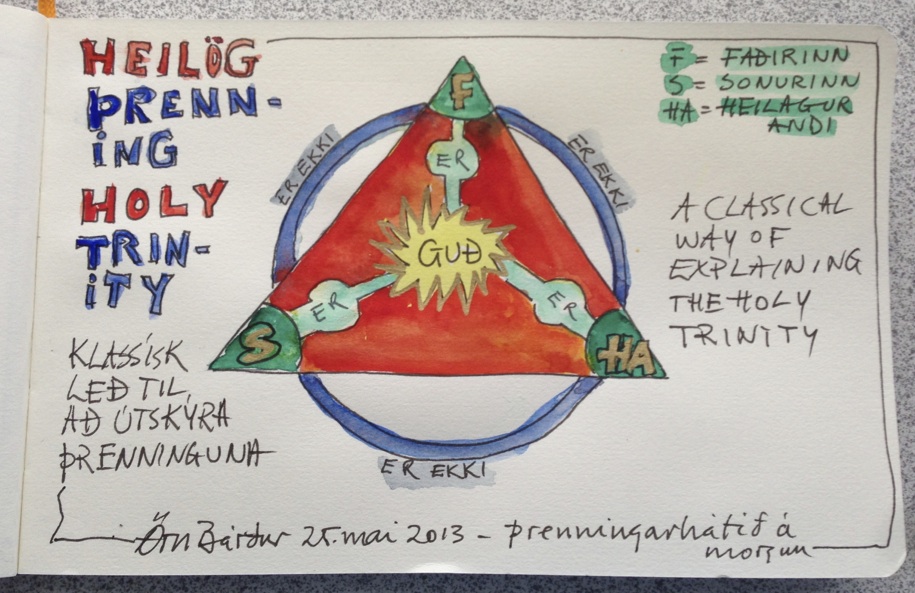 HEILÖG
ÞRENN-
ING
HOLY
TRIN-
ITY
KLASSÍSK
LEÐ TIL
AÐ ÚTSKÝRA
ÞRENNINGUNA
F
ER
ER EKKI
ER EKKI
GUÐ
ER
ER
S
HA
ER EKKI
F = FAÐIRINN
S = SONURINN
HA = HEILAGUR
ANDI
A CLASSICAL
WAY OF
EXPLAINING
THE HOLY
TRINITY
Örn Bárður 25. mai 2013 – Þrenningarhátíð á
morgun